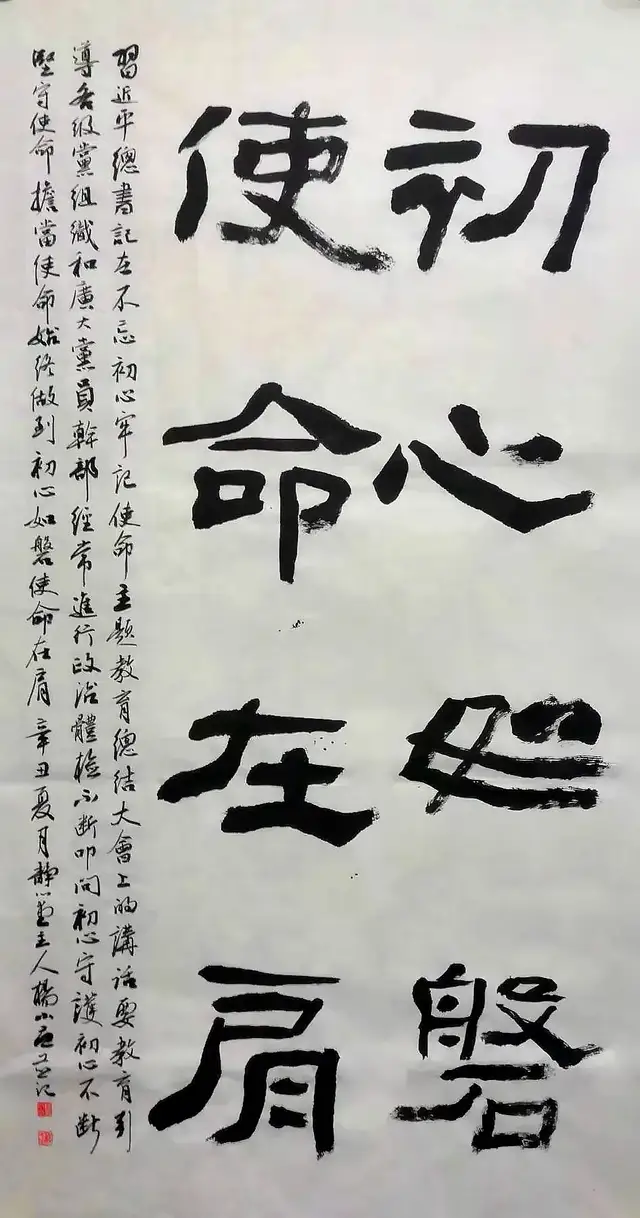 初心如磐
使命在肩
習近平總書記在不忘初心牢記使命主題教育總结大會上的講话要教育引
導各级黨组織和廣大黨員幹部經常進行政治體檢不断叩问初心守護初心不断
堅守使命擔當使命始终做到初心如磐使命在肩辛丑夏月靜心堂主人楊小